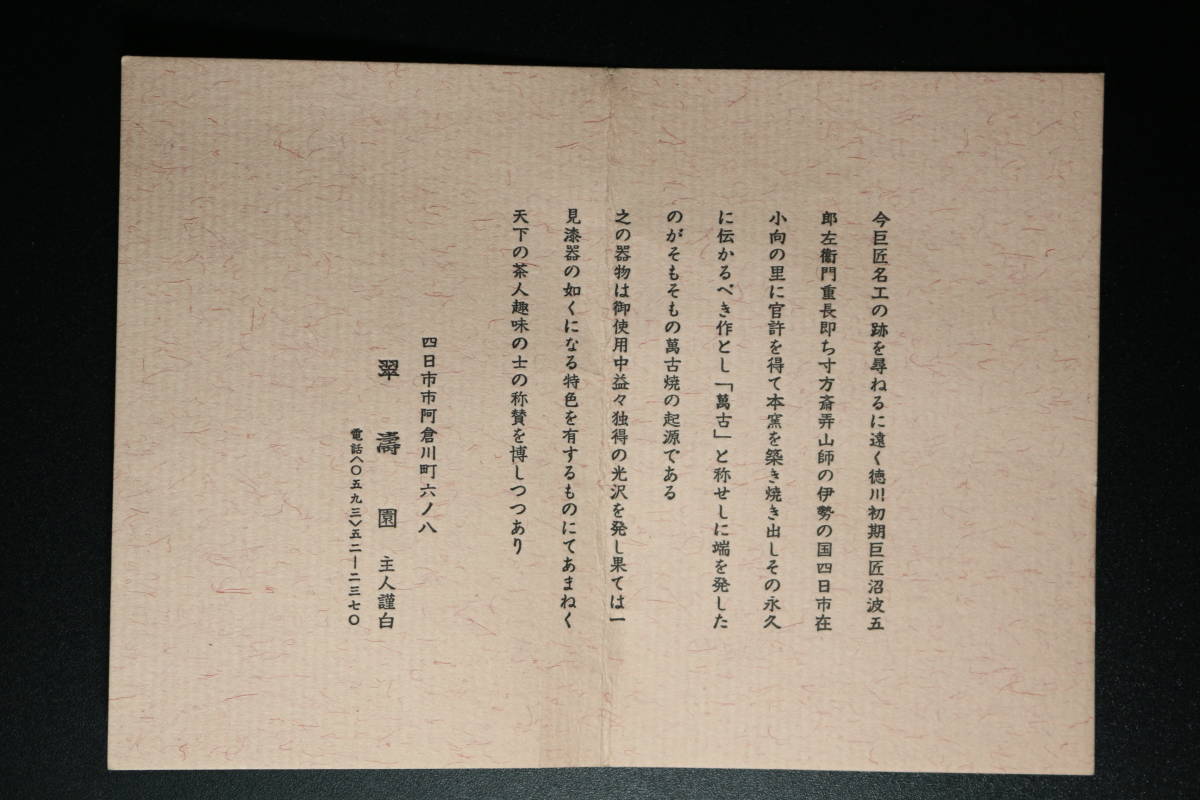 今巨匠名工の跡を尋ねるに遠く徳川初期巨匠沼波五
郎左衞門重長即ち寸方斎弄山師の伊勢の国四日市在
小向の里に官許を得て本窯を築き焼き出しその永久
に伝かるべき作とし「萬古」と称せしに端を発した
のがそもそもの萬古焼の起源である
之の器物は御使用中益々独得の光沢を発し果ては一
見漆器の如くになる特色を有するものにてあまねく
天下の茶人趣味の士の称賛を博しつつあり
四日市市阿倉川町六ノ八
翠濤園 主人謹白
電話〈〇五九三〉五二ー二三七〇